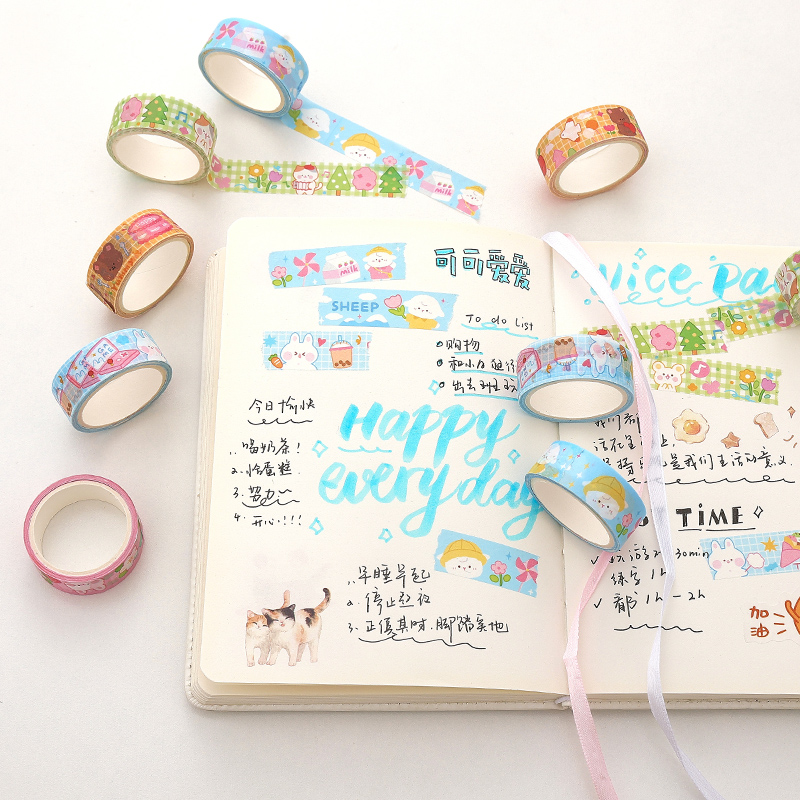 milk
milk
milk
可可爱爱
SHEEP
To do List
购物
出去
今日愉快
1. 喝奶茶!
2. 吃蛋糕.
3. 努力
4. 开心!!!
Happy
everyday
1. 早睡早起
2. 停止熬夜
3. 脚踏实地
Nice Da
是我们生活的意义.
TIME
✓ 30min
练字 1h
✓ 1h-2h
加
油